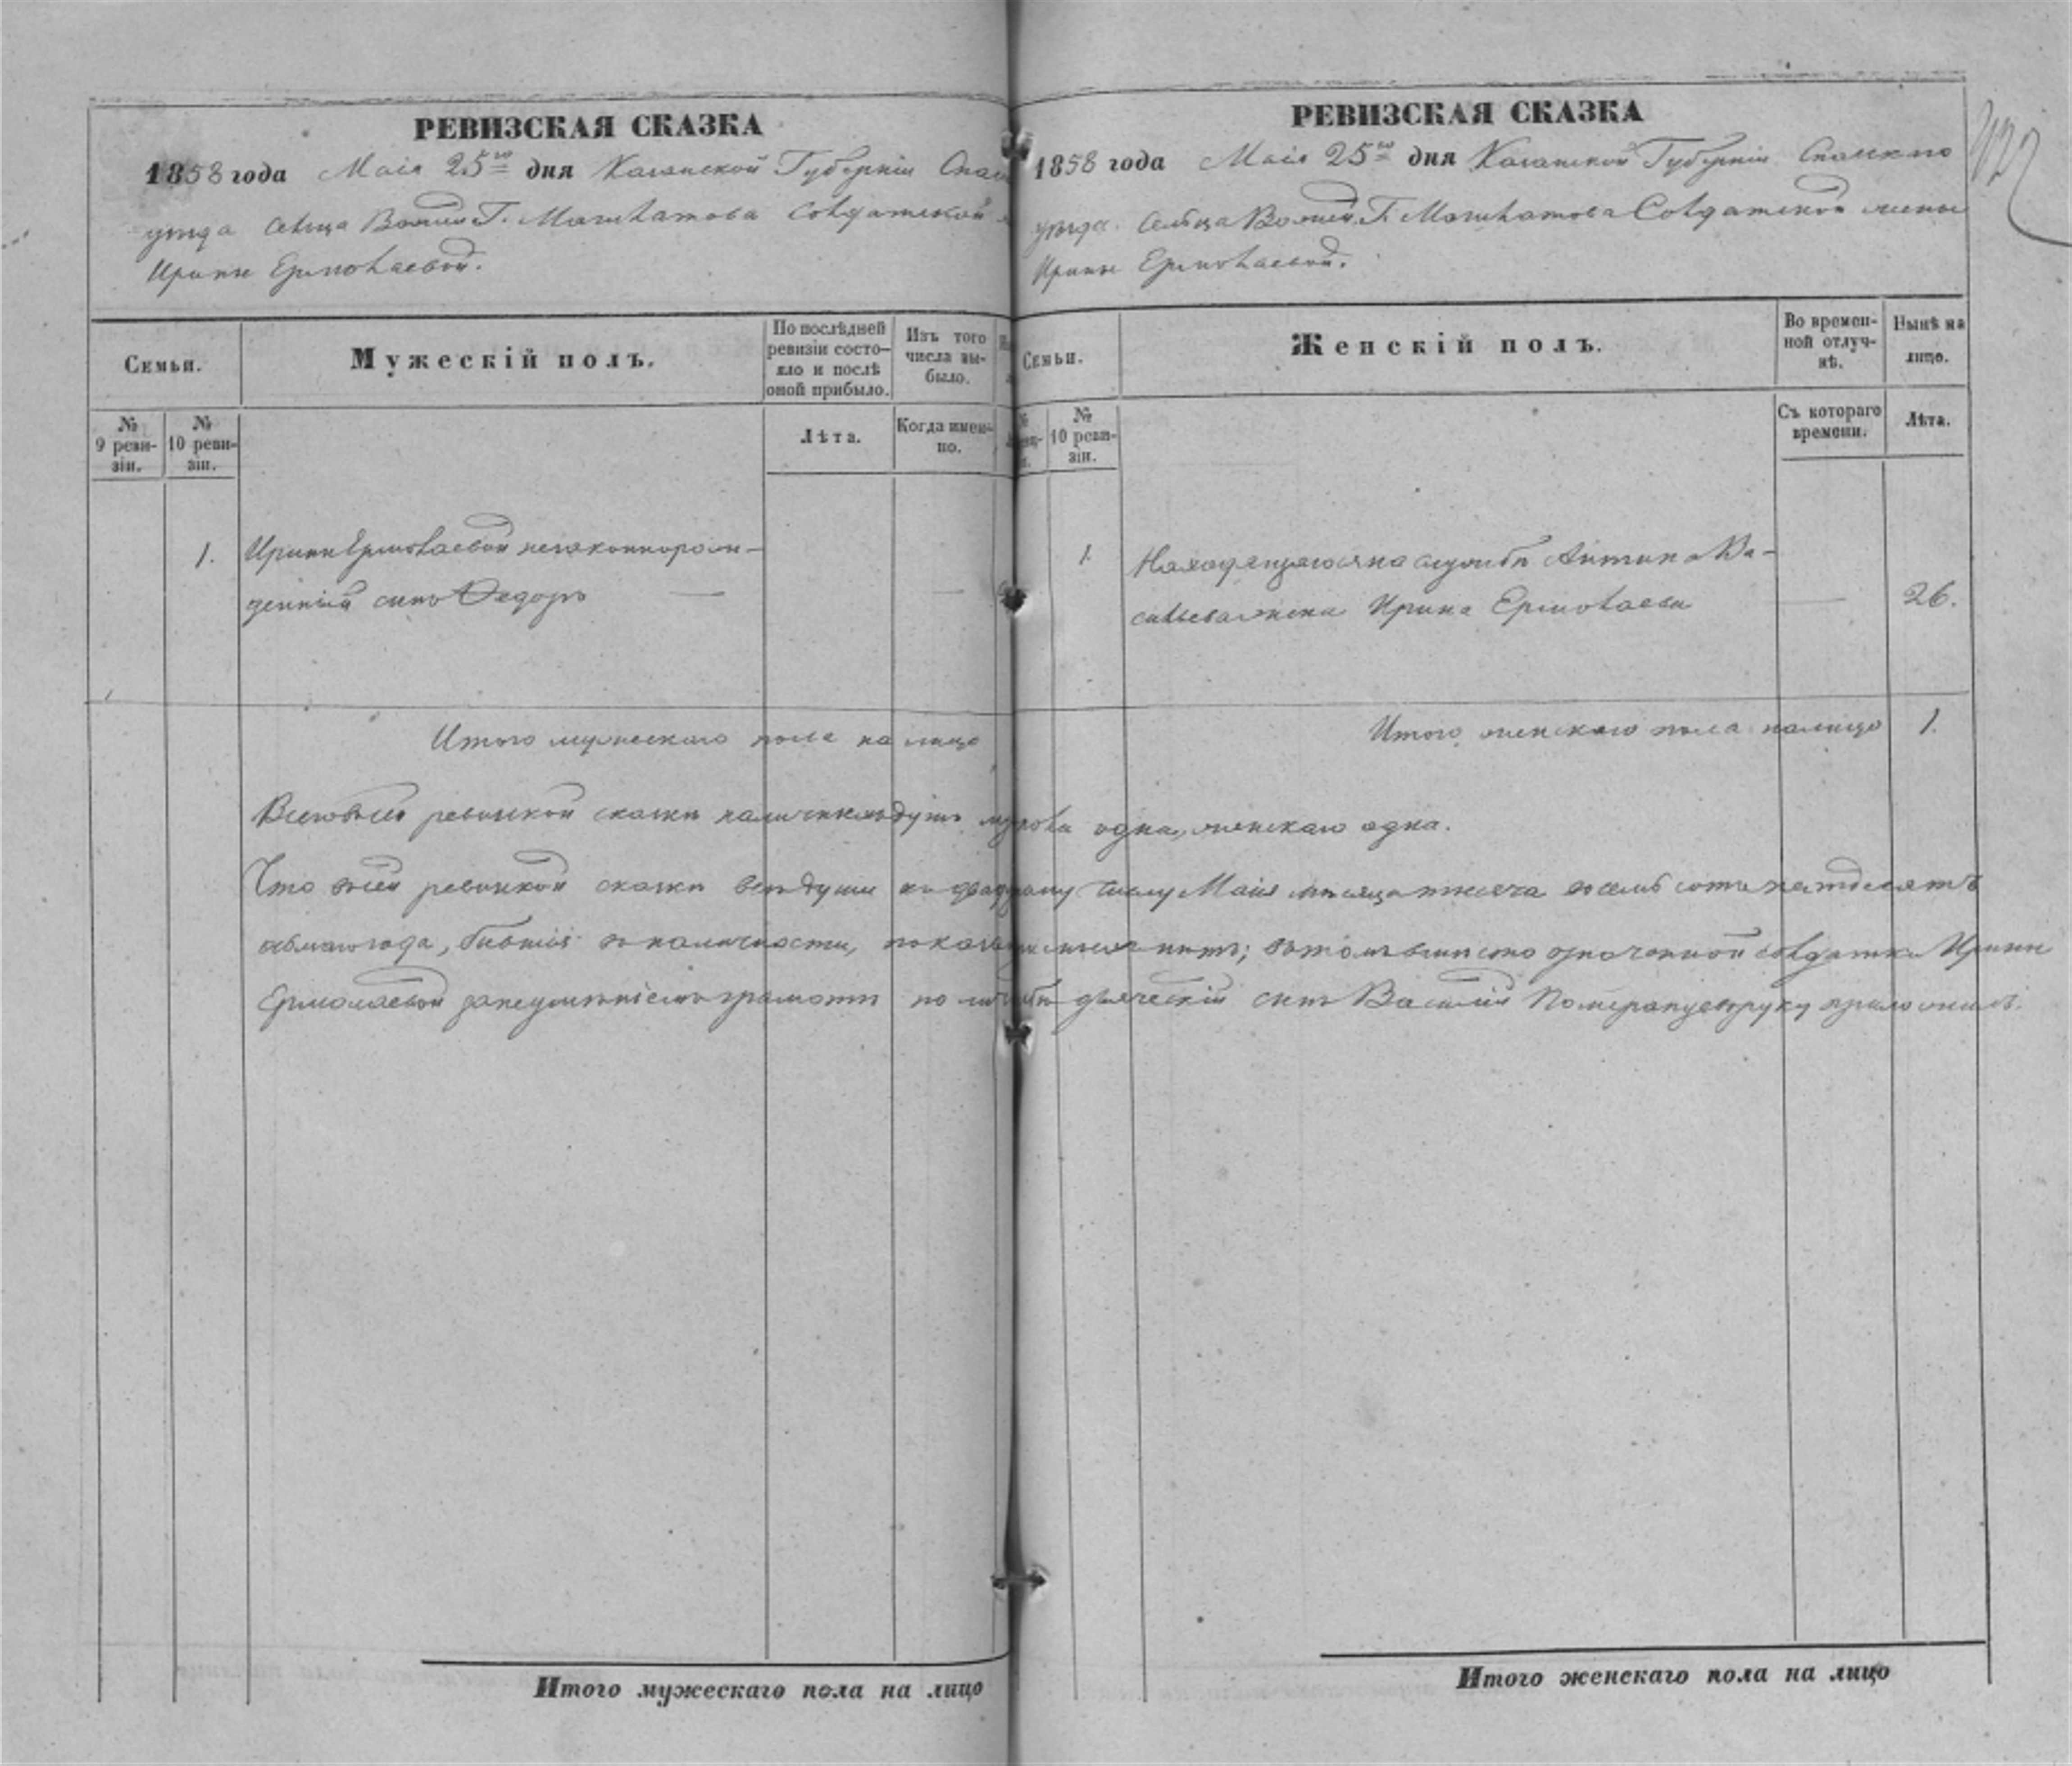 РЕВИЗСКАЯ СКАЗКА
1858 года Маія 25го дня Казанской Губерніи
уѣзда сельца Г. Молоствова солдатской
Ирины Ермолаевой.
Семьи.
Мужескій полъ.
По послѣдней ревизіи состо-
яло и послѣ
оной прибыло.
Изъ того
числа вы-
было.
№
9 реви-
зіи.
№
10 реви-
зіи.
Лѣта.
Когда имен-
но.
1. Ирины Ермолаевой незаконнорож-
денный сынъ Федоръ —
—
Итого мужескаго пола на лицо
РЕВИЗСКАЯ СКАЗКА
1858 года Маія 25го дня Казанской Губерніи Спаскаго
уѣзда сельца Г. Молоствова Солдатской жены
Ирины Ермолаевой.
Семьи.
Женскій полъ.
Во времен-
ной отлуч-
кѣ.
Нынѣ на
лицо.
№
10 реви-
зіи.
Съ котораго
времени.
Лѣта.
1. Находящагося на службѣ Антипа Ва-
сильева жена Ирина Ермолаева — 26.
Итого женскаго пола на лицо 1.
Всего въ сей ревизской сказкѣ наличныхъ душъ одна, женскаго одна.
Что въ сей ревизской сказкѣ всѣ души къ числу Маія мѣсяца тысяча восемь сотъ пятьдесятъ
осьмаго года, бывшія въ наличности, нѣтъ; въ томъ вмѣсто означенной солдатки Ирины
Ермолаевой за неумѣніемъ грамоты по дьяческій сынъ Василій Померанцевъ руку приложилъ.
Итого мужескаго пола на лицо
Итого женскаго пола на лицо